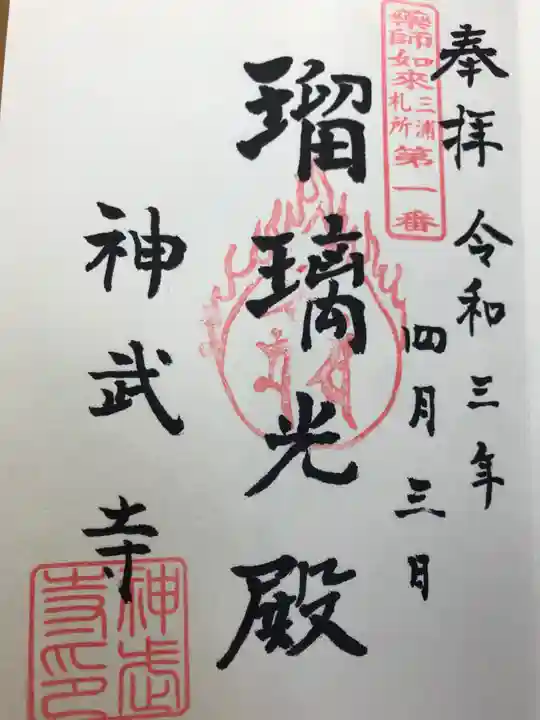 奉拝 令和三年
四月三日
薬師如来三浦札所第一番
瑠璃光殿
神武寺
神武寺印